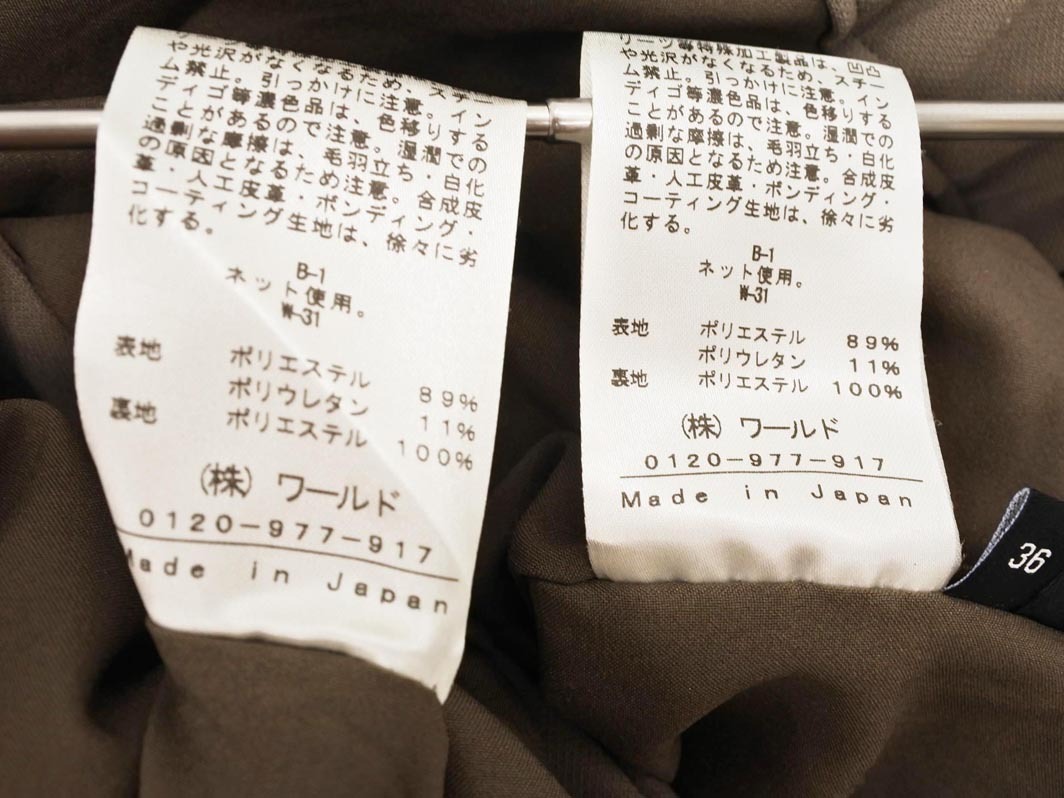 や光沢がなくなるため、スチー
ム禁止。引っかけに注意。イン
ディゴ等濃色品は、色移りする
ことがあるので注意。湿潤での
過剰な摩擦は、毛羽立ち・白化
の原因となるため注意。合成皮
革・人工皮革・ボンディング・
コーティング生地は、徐々に劣
化する。
B-1
ネット使用。
W-31
表地 ポリエステル 89%
ポリウレタン 11%
裏地 ポリエステル 100%
(株) ワールド
0120-977-917
Made in Japan
リーツ等特殊加工製品は、凹凸
や光沢がなくなるため、スチー
ム禁止。引っかけに注意。イン
ディゴ等濃色品は、色移りする
ことがあるので注意。湿潤での
過剰な摩擦は、毛羽立ち・白化
の原因となるため注意。合成皮
革・人工皮革・ボンディング・
コーティング生地は、徐々に劣
化する。
B-1
ネット使用。
W-31
表地 ポリエステル 89%
ポリウレタン 11%
裏地 ポリエステル 100%
(株) ワールド
0120-977-917
Made in Japan
36